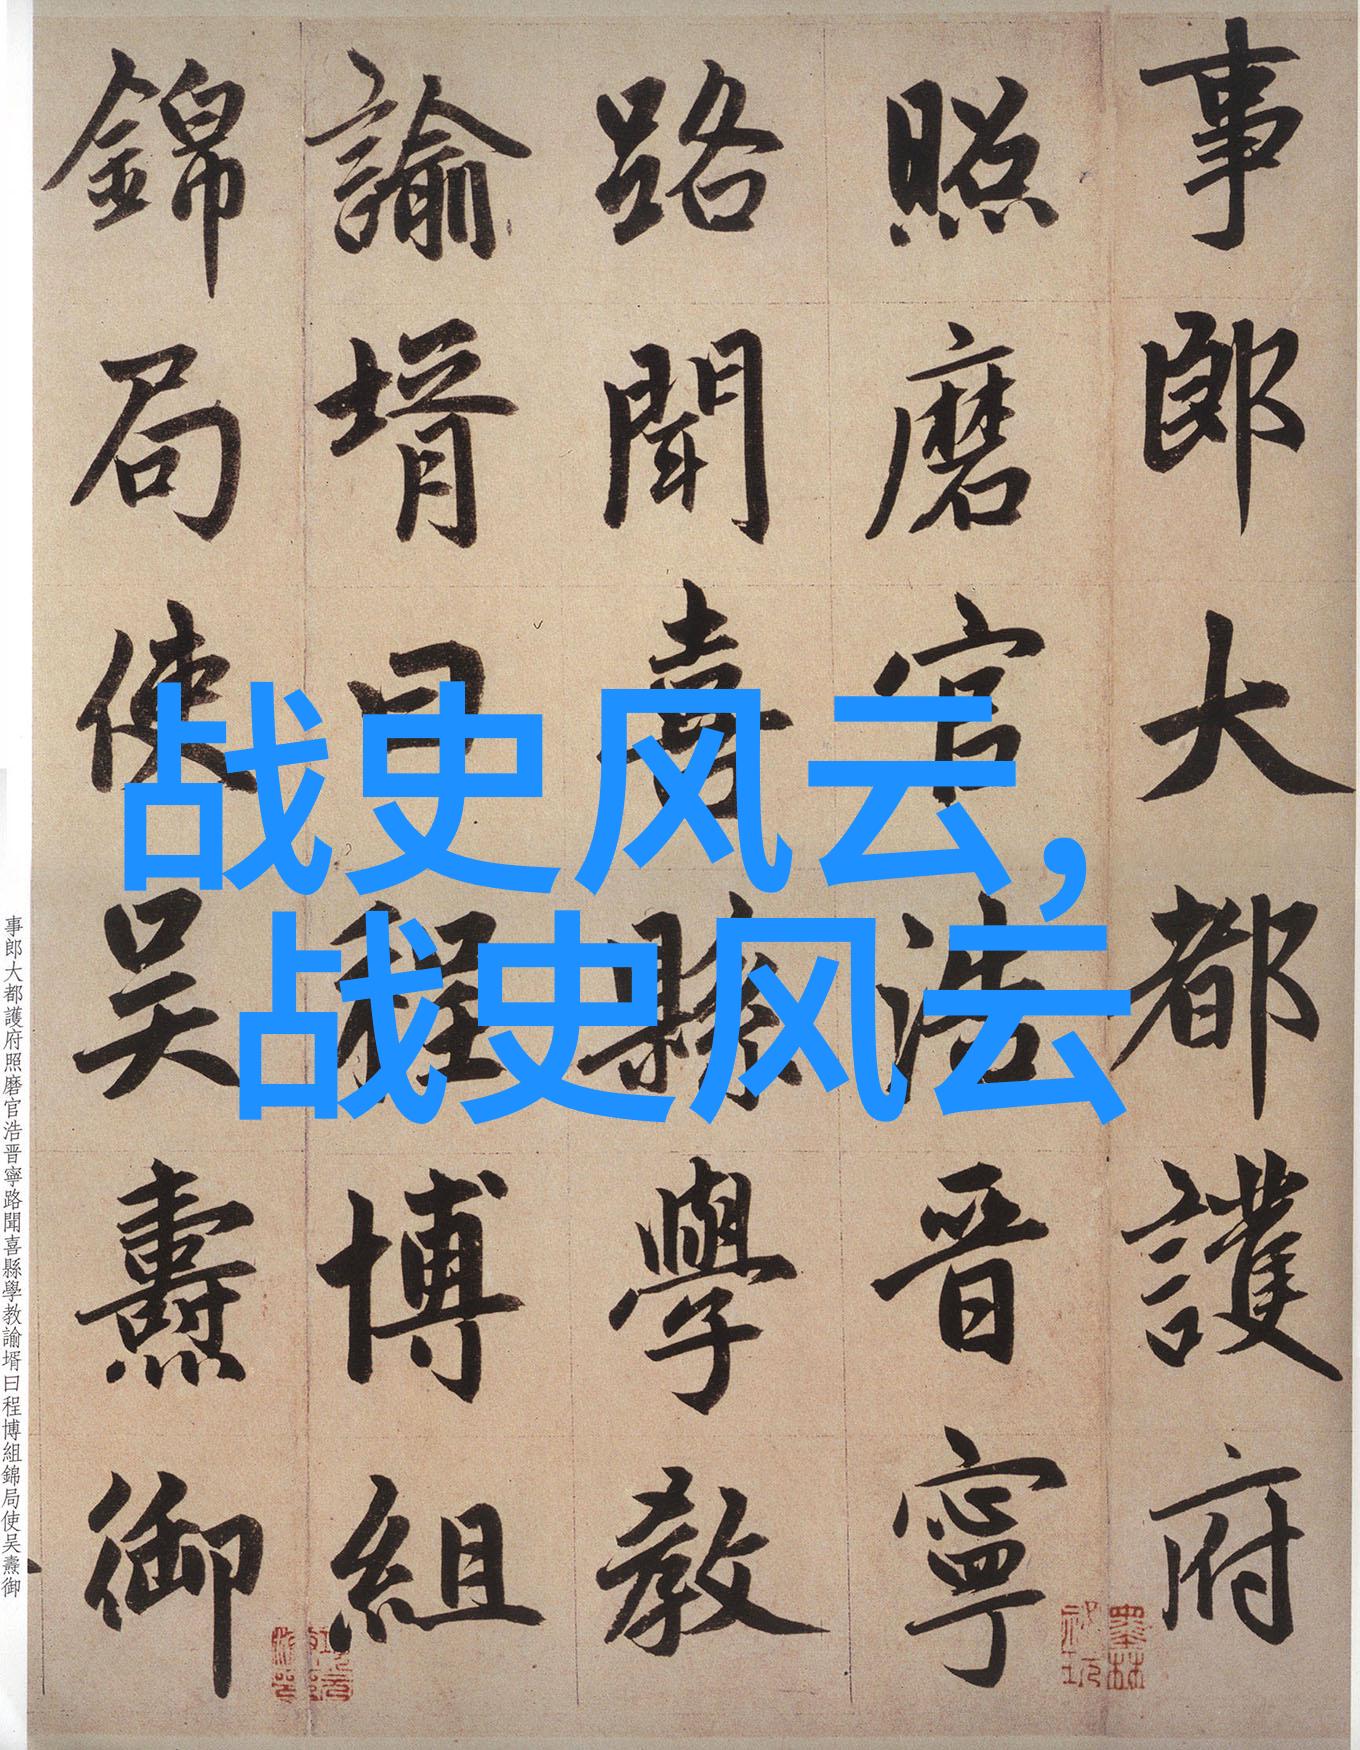 事郎大都護府
照磨官浩晋寧
路聞喜縣學教
諭壻曰程博組
錦局使吴燾御
战史风云,
战史风云
事郎大都護府照磨官浩晋寧路聞喜縣學教諭壻曰程博組錦局使吴燾御